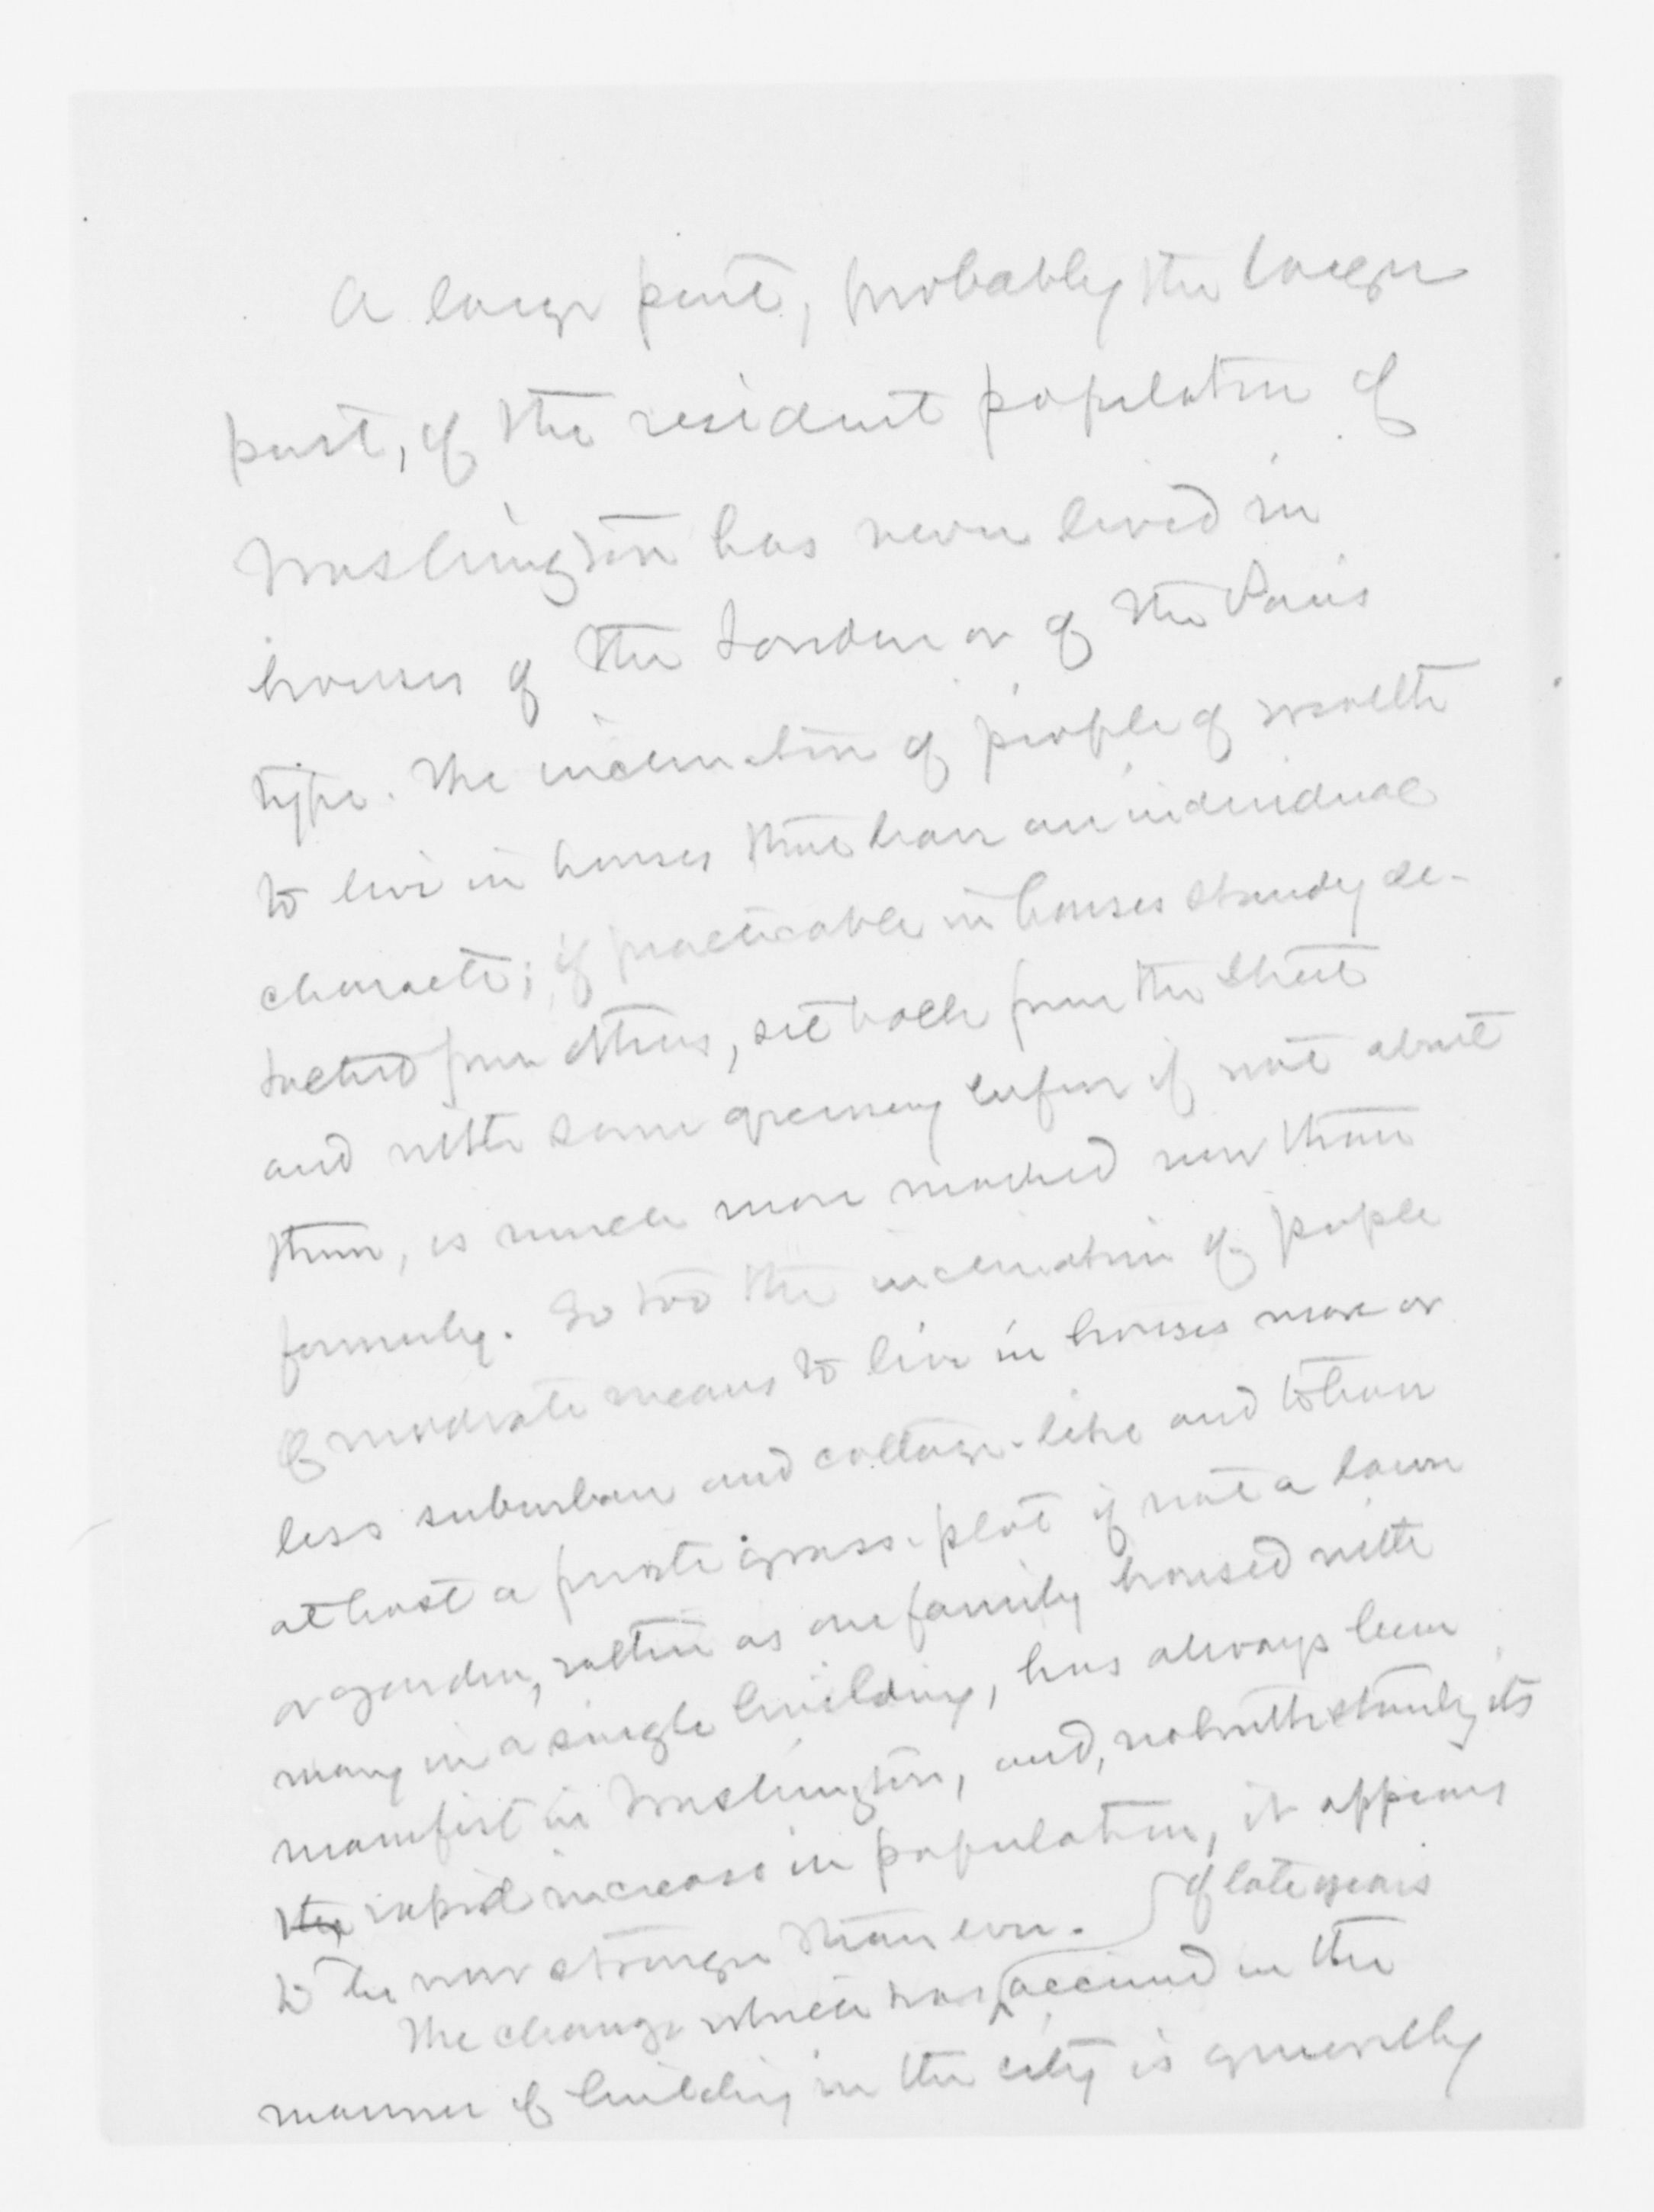 A large part, probably the larger
part, of the resident population of
Washington has never lived in
houses of the London or of the Paris
type. The inclination of people of wealth
to live in houses that have an individual
character; if practicable in houses standing de-
tached from others, set back from the street
and with some greenery before if not about
them, is much more marked now than
formerly. So too the inclination of people
of moderate means to live in houses more or
less suburban and cottage-like and to have
at least a private grass-plot if not a lawn
or garden, rather as one family housed with
many in a single building, has always been
manifest in Washington, and, notwithstanding its
the rapid increase in population, it appears
to be now stronger than ever.
of late years
The change which has occurred in the
manner of building in the city is generally